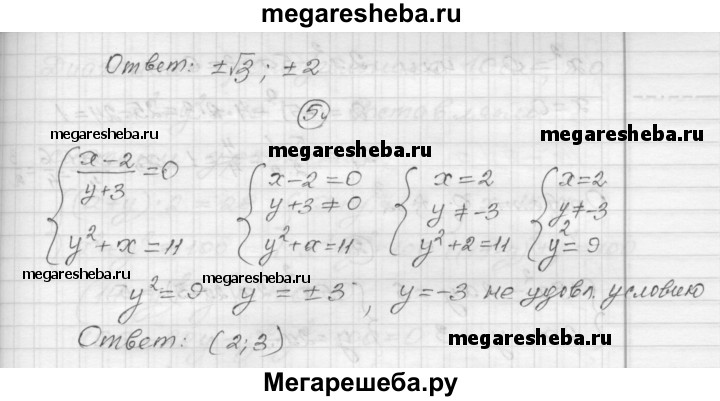 megaresheba.ru
Ответ: ±√3; ±2
5
megaresheba.ru
megaresheba.ru
megaresheba.ru
{ (x-2)/(y+3) =0 { x-2=0 { x=2 { x=2
y+3≠0 y≠-3 y≠-3
y²+x=11 y²+x=11 y²+2=11 y²=9
megaresheba.ru
megaresheba.ru
y²=9 y=±3, y=-3 не удовл. условию
Ответ: (2;3)
megaresheba.ru
Мегарешеба.ру